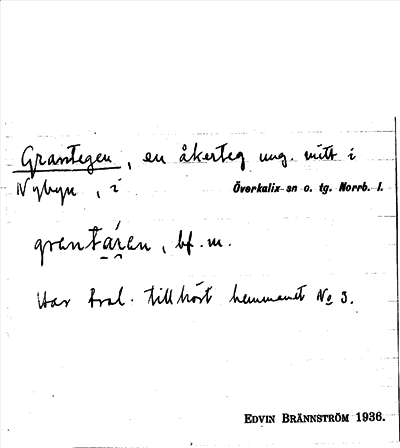 Grantegen, en åkerteg ung. mitt i
Nybyn, i Överkalix sn o. tg. Norrb. l.
grantáran, bf. m.
Har tillhört hemmanet No 3.
EDVIN BRÄNNSTRÖM 1936.